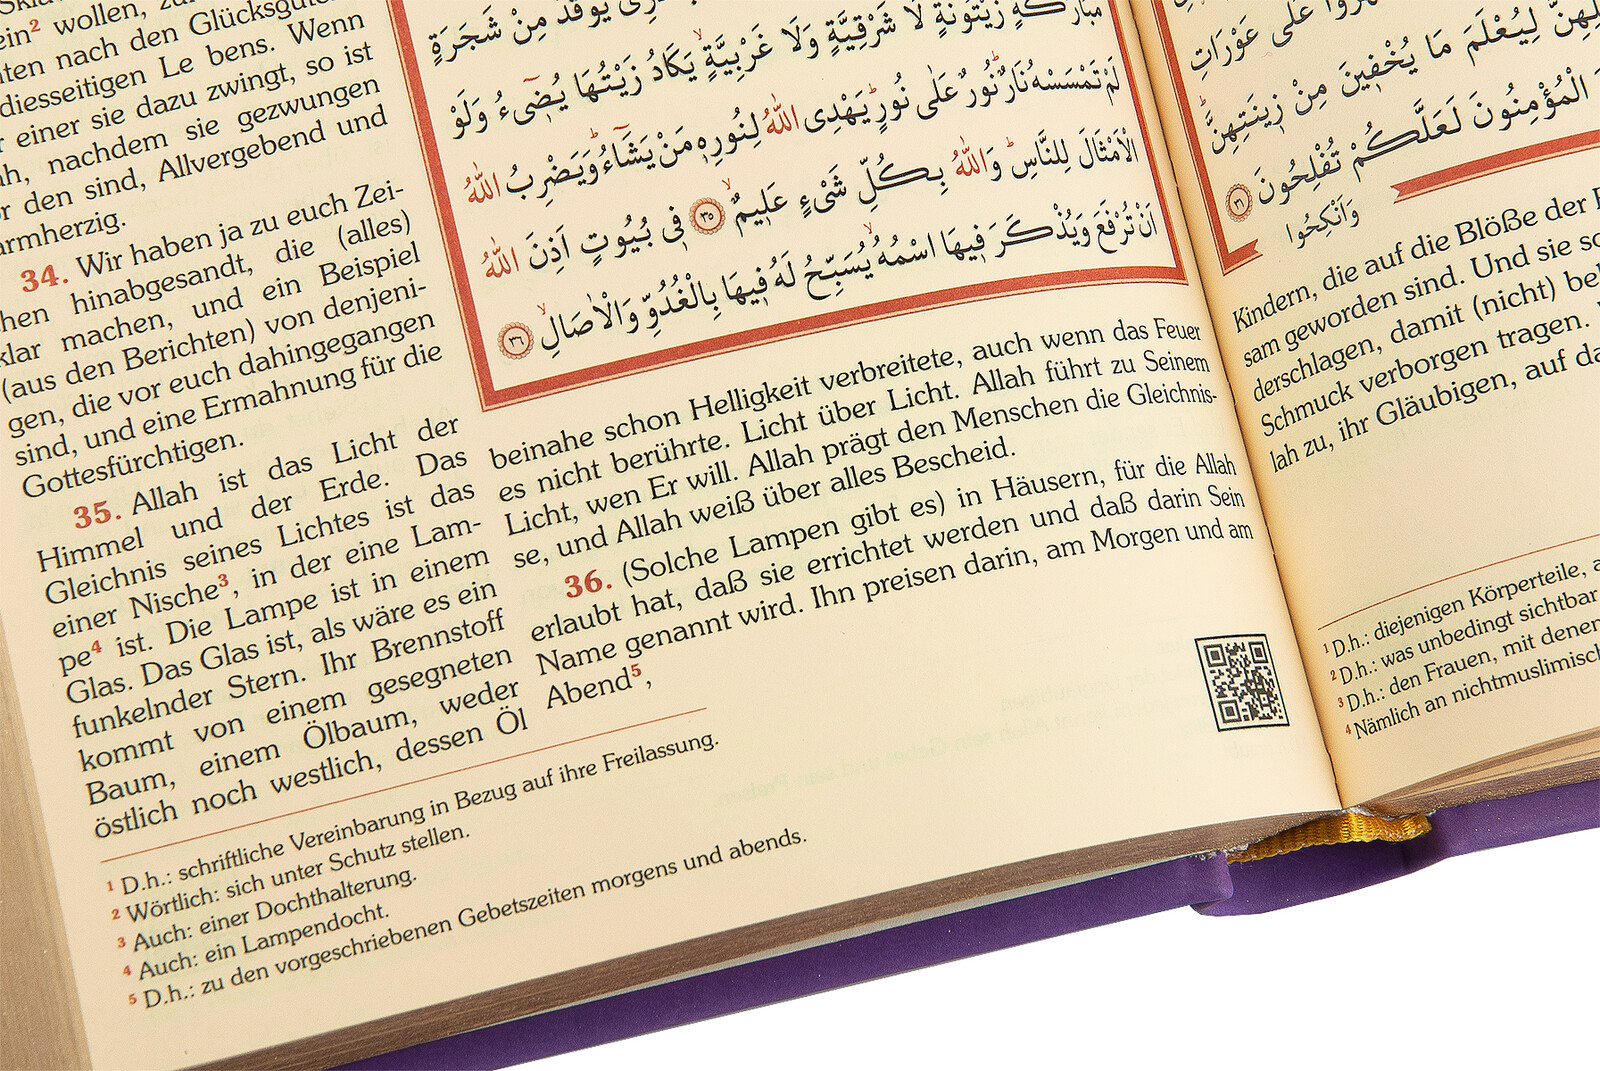 ein² wollen, zu
ten nach den Glücksgüter
diesseitigen Le bens. Wenn
r einer sie dazu zwingt, so ist
ah, nachdem sie gezwungen
r den sind, Allvergebend und
armherzig.
34. Wir haben ja zu euch Zei-
chen hinabgesandt, die (alles)
klar machen, und ein Beispiel
(aus den Berichten) von denjeni-
gen, die vor euch dahingegangen
sind, und eine Ermahnung für die
Gottesfürchtigen.
35. Allah ist das Licht der
Himmel und der Erde. Das
Gleichnis seines Lichtes ist das
einer Nische³, in der eine Lam-
pe⁴ ist. Die Lampe ist in einem
Glas. Das Glas ist, als wäre es ein
funkelnder Stern. Ihr Brennstoff
kommt von einem gesegneten
Baum, einem Ölbaum, weder
östlich noch westlich, dessen Öl
مُبَارَكَةٍ زَيْتُونَةٍ لَا شَرْقِيَّةٍ وَلَا غَرْبِيَّةٍ يَكَادُ زَيْتُهَا يُضِيءُ وَلَوْ
لَمْ تَمْسَسْهُ نَارٌ نُورٌ عَلَى نُورٍ يَهْدِي اللّٰهُ لِنُورِهِ مَنْ يَشَاءُ وَيَضْرِبُ اللّٰهُ
الْاَمْثَالَ لِلنَّاسِ وَاللّٰهُ بِكُلِّ شَيْءٍ عَلِيمٌ ٣٥ فِي بُيُوتٍ اَذِنَ اللّٰهُ
اَنْ تُرْفَعَ وَيُذْكَرَ فِيهَا اسْمُهُ يُسَبِّحُ لَهُ فِيهَا بِالْغُدُوِّ وَالْاٰصَالِ ٣٦
beinahe schon Helligkeit verbreitete, auch wenn das Feuer
es nicht berührte. Licht über Licht. Allah führt zu Seinem
Licht, wen Er will. Allah prägt den Menschen die Gleichnis-
se, und Allah weiß über alles Bescheid.
36. (Solche Lampen gibt es) in Häusern, für die Allah
erlaubt hat, daß sie errichtet werden und daß darin Sein
Name genannt wird. Ihn preisen darin, am Morgen und am
Abend⁵,
¹ D.h.: schriftliche Vereinbarung in Bezug auf ihre Freilassung.
² Wörtlich: sich unter Schutz stellen.
³ Auch: einer Dochthalterung.
⁴ Auch: ein Lampendocht.
⁵ D.h.: zu den vorgeschriebenen Gebetszeiten morgens und abends.
عَلَى عَوْرَاتِ
لِيُعْلَمَ مَا يُخْفِينَ مِنْ زِينَتِهِنَّ
الْمُؤْمِنُونَ لَعَلَّكُمْ تُفْلِحُونَ ٣١
وَاَنْكِحُوا
Kindern, die auf die Blöße der
sam geworden sind. Und sie so
derschlagen, damit (nicht) be
Schmuck verborgen tragen.
lah zu, ihr Gläubigen, auf da
¹ D.h.: diejenigen Körperteile, a
² D.h.: was unbedingt sichtbar
³ D.h.: den Frauen, mit denen
⁴ Nämlich an nichtmuslimisch